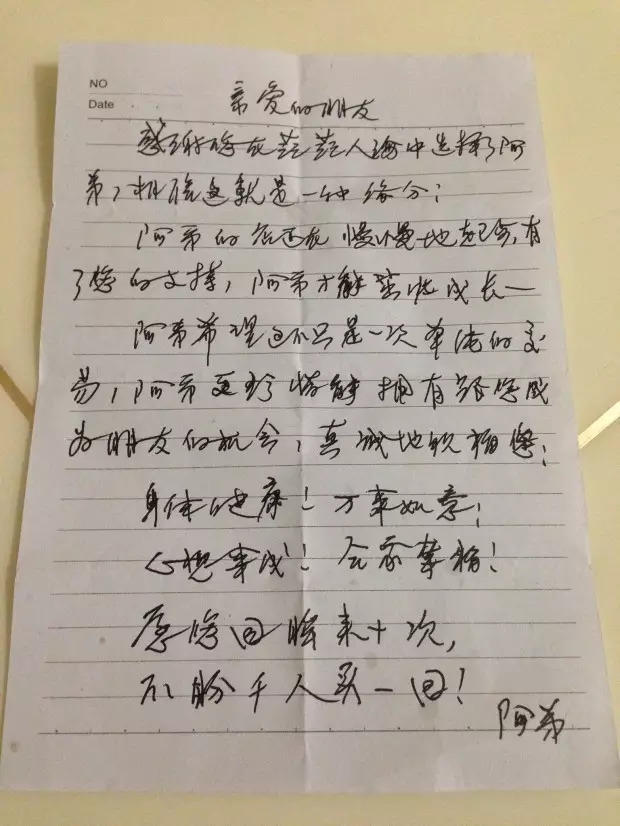 NO
Date
亲爱的朋友
感谢您在茫茫人海中选择了阿
弟,相信这就是一种缘分!
阿弟的店还在慢慢地起步,有
了您的支撑,阿弟才能茁壮成长一
阿弟希望这不只是一次单纯的交
易,阿弟更珍惜能拥有跟您成
为朋友的机会,真诚地祝福您:
身体健康!万事如意!
心想事成!合家幸福!
愿您回眸来十次,
不盼千人买一回!
阿弟